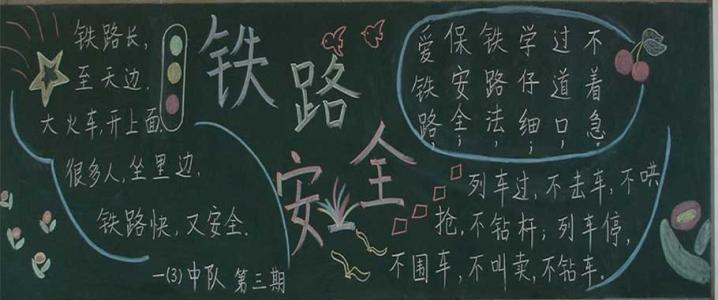 铁路安全
铁路长,
至天边.
大火车,开上面.
很多人,坐里边.
铁路快,又安全.
一(3)中队 第三期
爱铁路,
保安全;
铁路法,
学仔细;
过道口,
不着急.
列车过,不去车,不哄
抢,不钻杆;列车停,
不围车,不叫卖,不钻车.